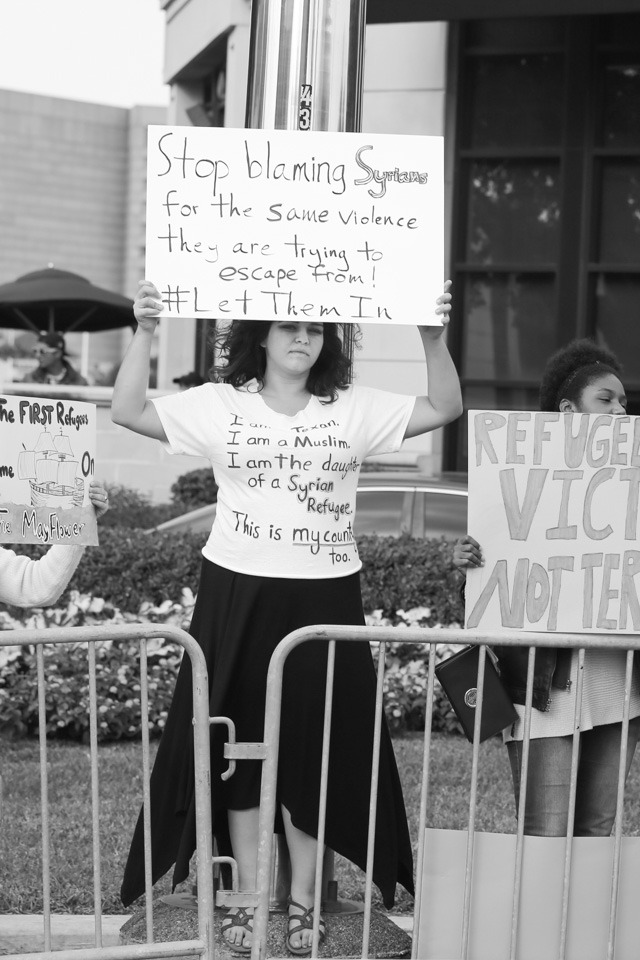 43
Stop blaming Syrians
for the same violence
they are trying to
escape from!
#Let Them In
The FIRST Refugees
On
The MayFlower
I am Texan.
I am a Muslim.
I am the daughter
of a Syrian
Refugee.
This is my country
too.
REFUGEE
VICT
NOT TER